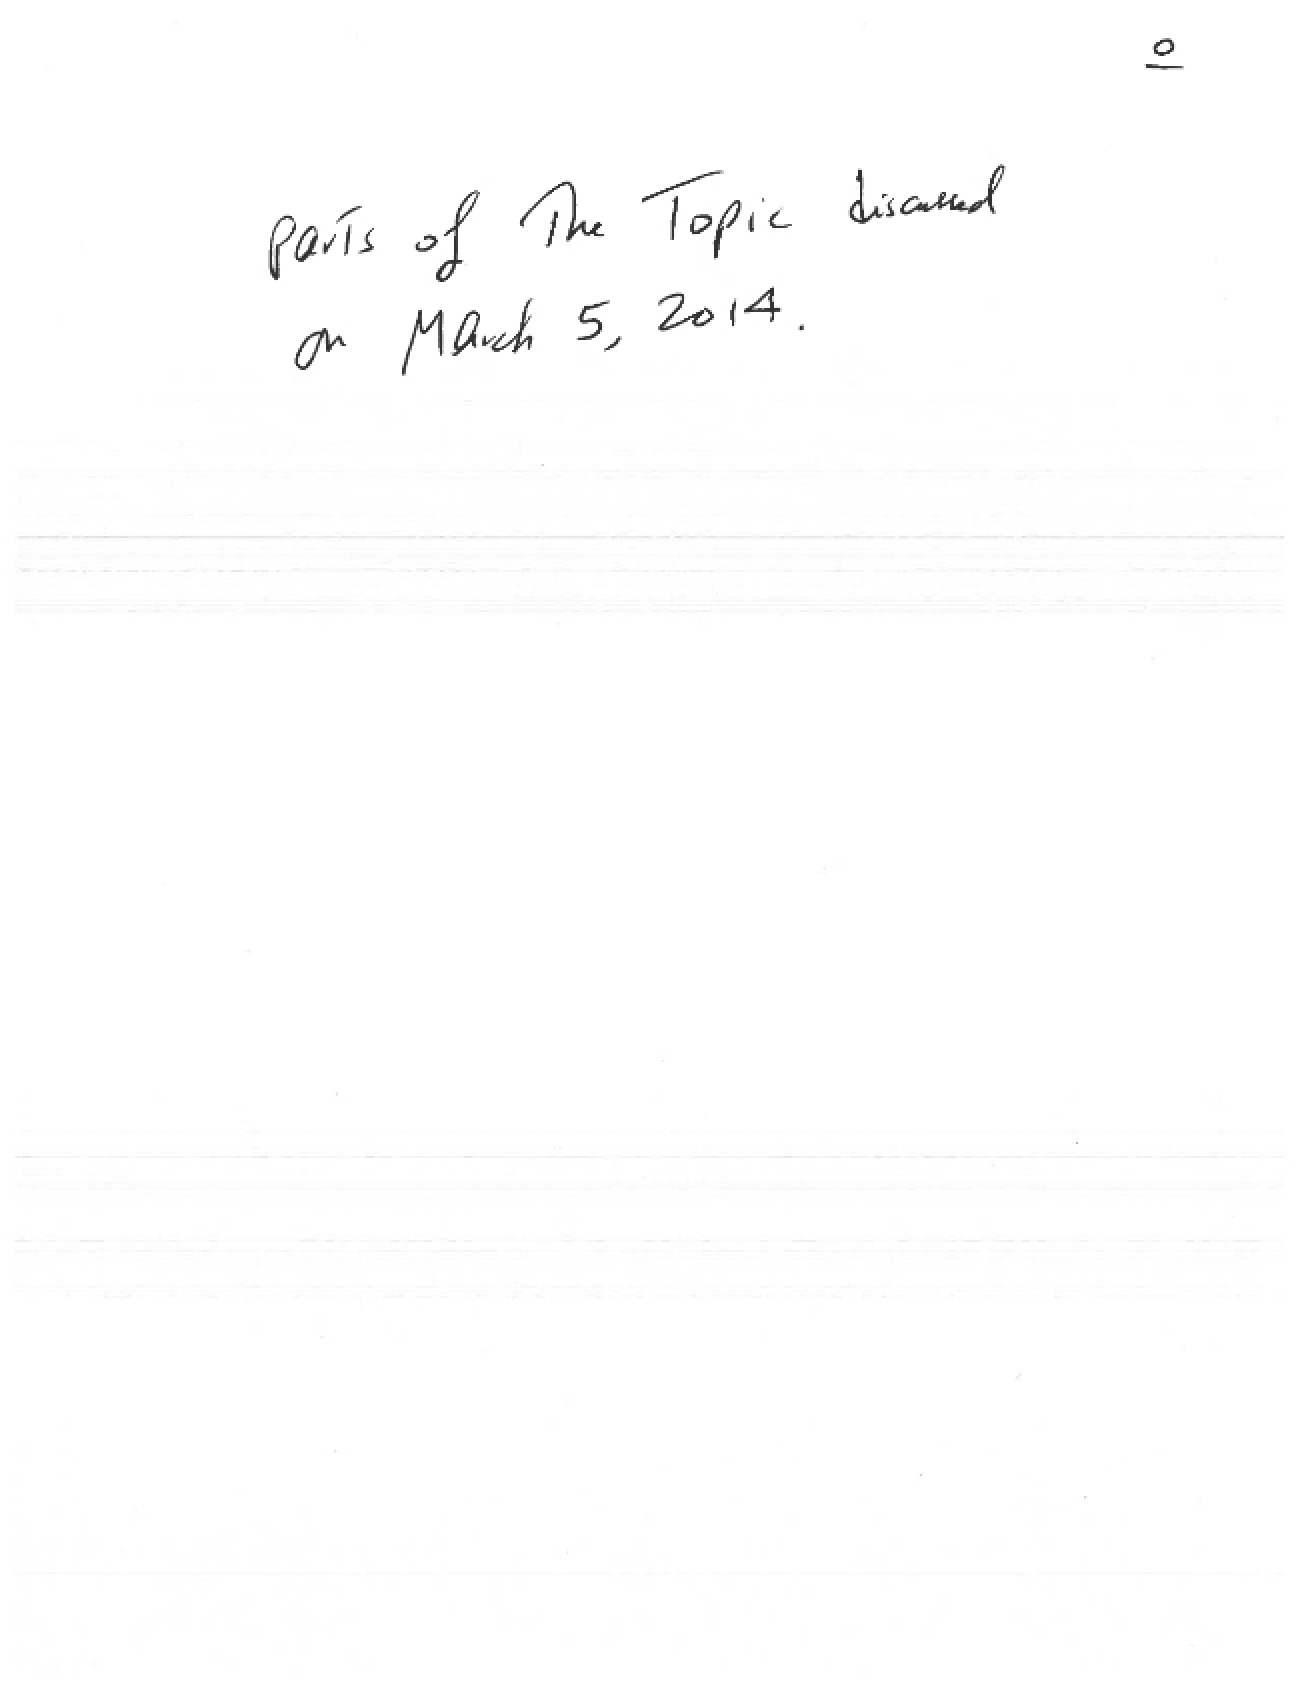 0
Parts of The Topic discussed
on March 5, 2014.